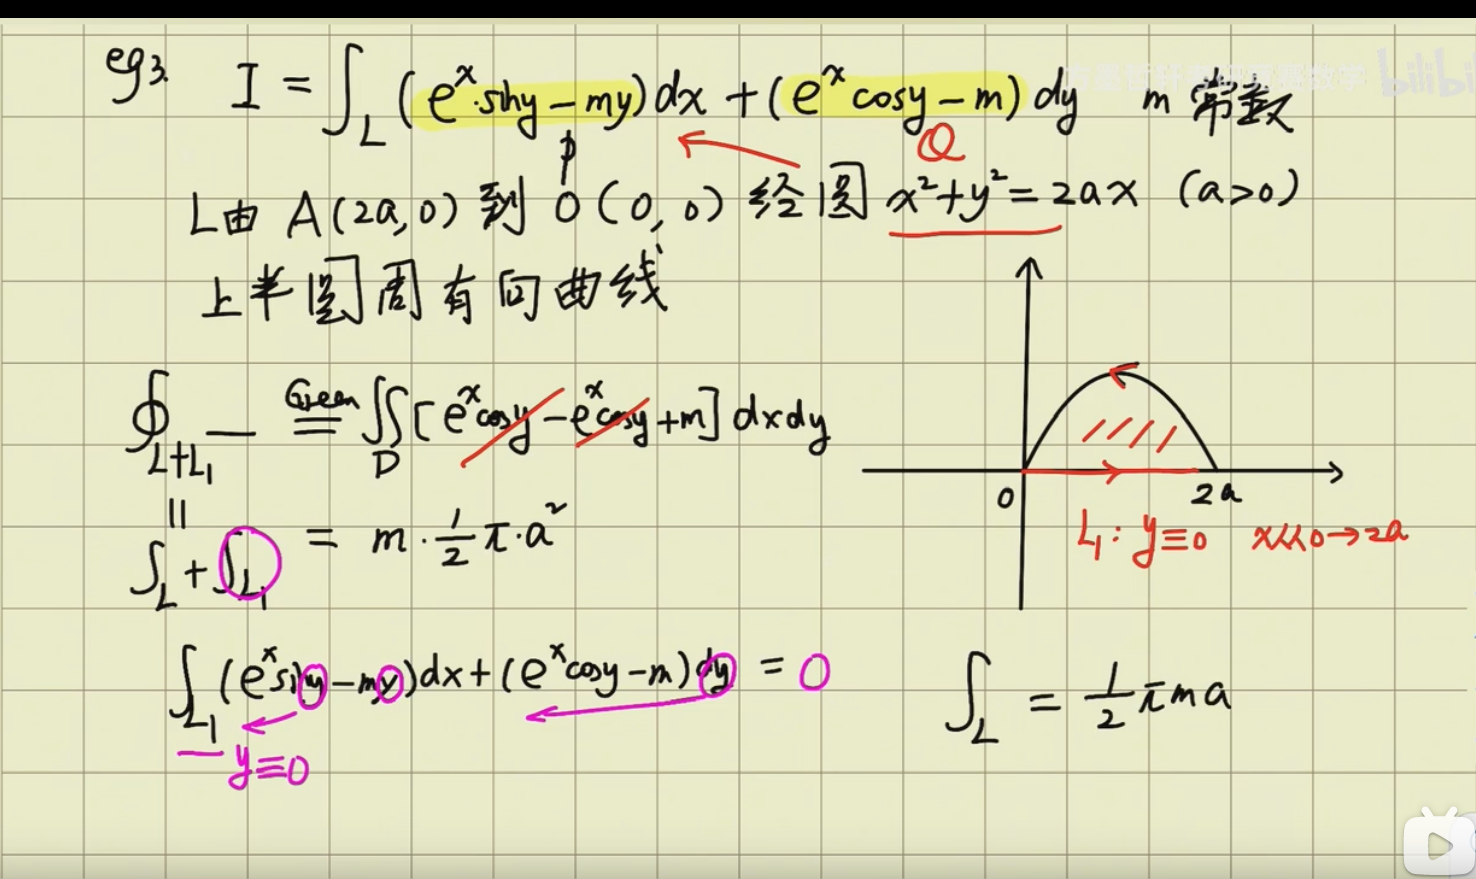 eg3. I = ∫_L (e^x·siny - my)dx + (e^x cosy - m)dy m 常数
P Q
L由 A(2a,0) 到 O(0,0) 经圆 x²+y²=2ax (a>0)
上半圆周有向曲线
∮_{L+L₁} — Green ∬_D [e^x cosy - e^x cosy + m] dxdy
||
∫_L + ∫_{L₁} = m·1/2 π·a²
0 2a
L₁: y≡0 x从0→2a
∫_{L₁} (e^x siny - my)dx + (e^x cosy - m)dy = 0
y≡0
∫_L = 1/2 πma
bilibi